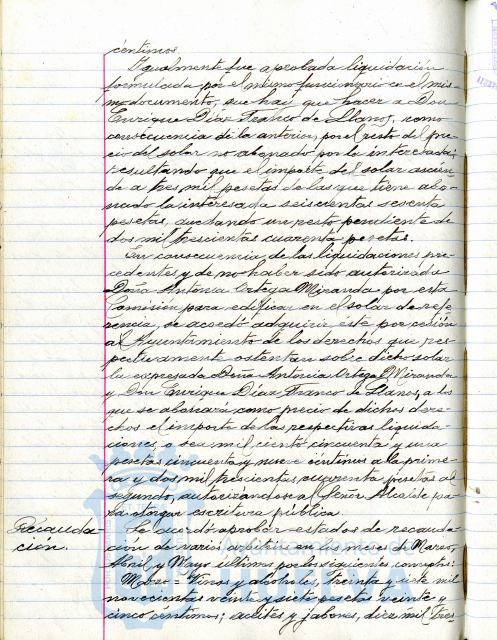 céntimos.
Igualmente fue aprobada liquidación
formulada por el mismo funcionario en el mis-
mo documento, que hay que hacer a Don
Enrique Díaz Franco de Llanos, como
consecuencia de la anterior, por el resto del pre-
cio del solar no abonado por la interesada;
resultando que el importe del solar ascien-
de a tres mil pesetas de las que tiene abo-
nado la interesada seiscientas sesenta
pesetas, quedando un resto pendiente de
dos mil trescientas cuarenta pesetas.
En consecuencia de las liquidaciones pre-
cedentes y de no haber sido autorizada
Doña Antonia Ortega Miranda por esta
Comisión para edificar en el solar de refe-
rencia, se acordó adquirir este por cesión
al Ayuntamiento de los derechos que res-
pectivamente ostentan sobre dicho solar
la expresada Doña Antonia Ortega Miranda
y Don Enrique Díaz Franco de Llanos, a los
que se abonará como precio de dichos dere-
chos el importe de las respectivas liquida-
ciones, o sea mil ciento cincuenta y una
pesetas cincuenta y nueve céntimos a la prime-
ra y dos mil trescientas cuarenta pesetas al
segundo, autorizándose al Señor Alcalde pa-
ra otorgar escritura pública.
Recauda- Se acordó aprobar estados de recauda-
ción. ción de varios arbitrios en los meses de Marzo,
Abril y Mayo últimos por los siguientes conceptos:
Marzo = Vinos y alcoholes, treinta y siete mil
novecientas veinte y siete pesetas veinte y
cinco céntimos; aceites y jabones, diez mil tres-
Ayuntamiento de